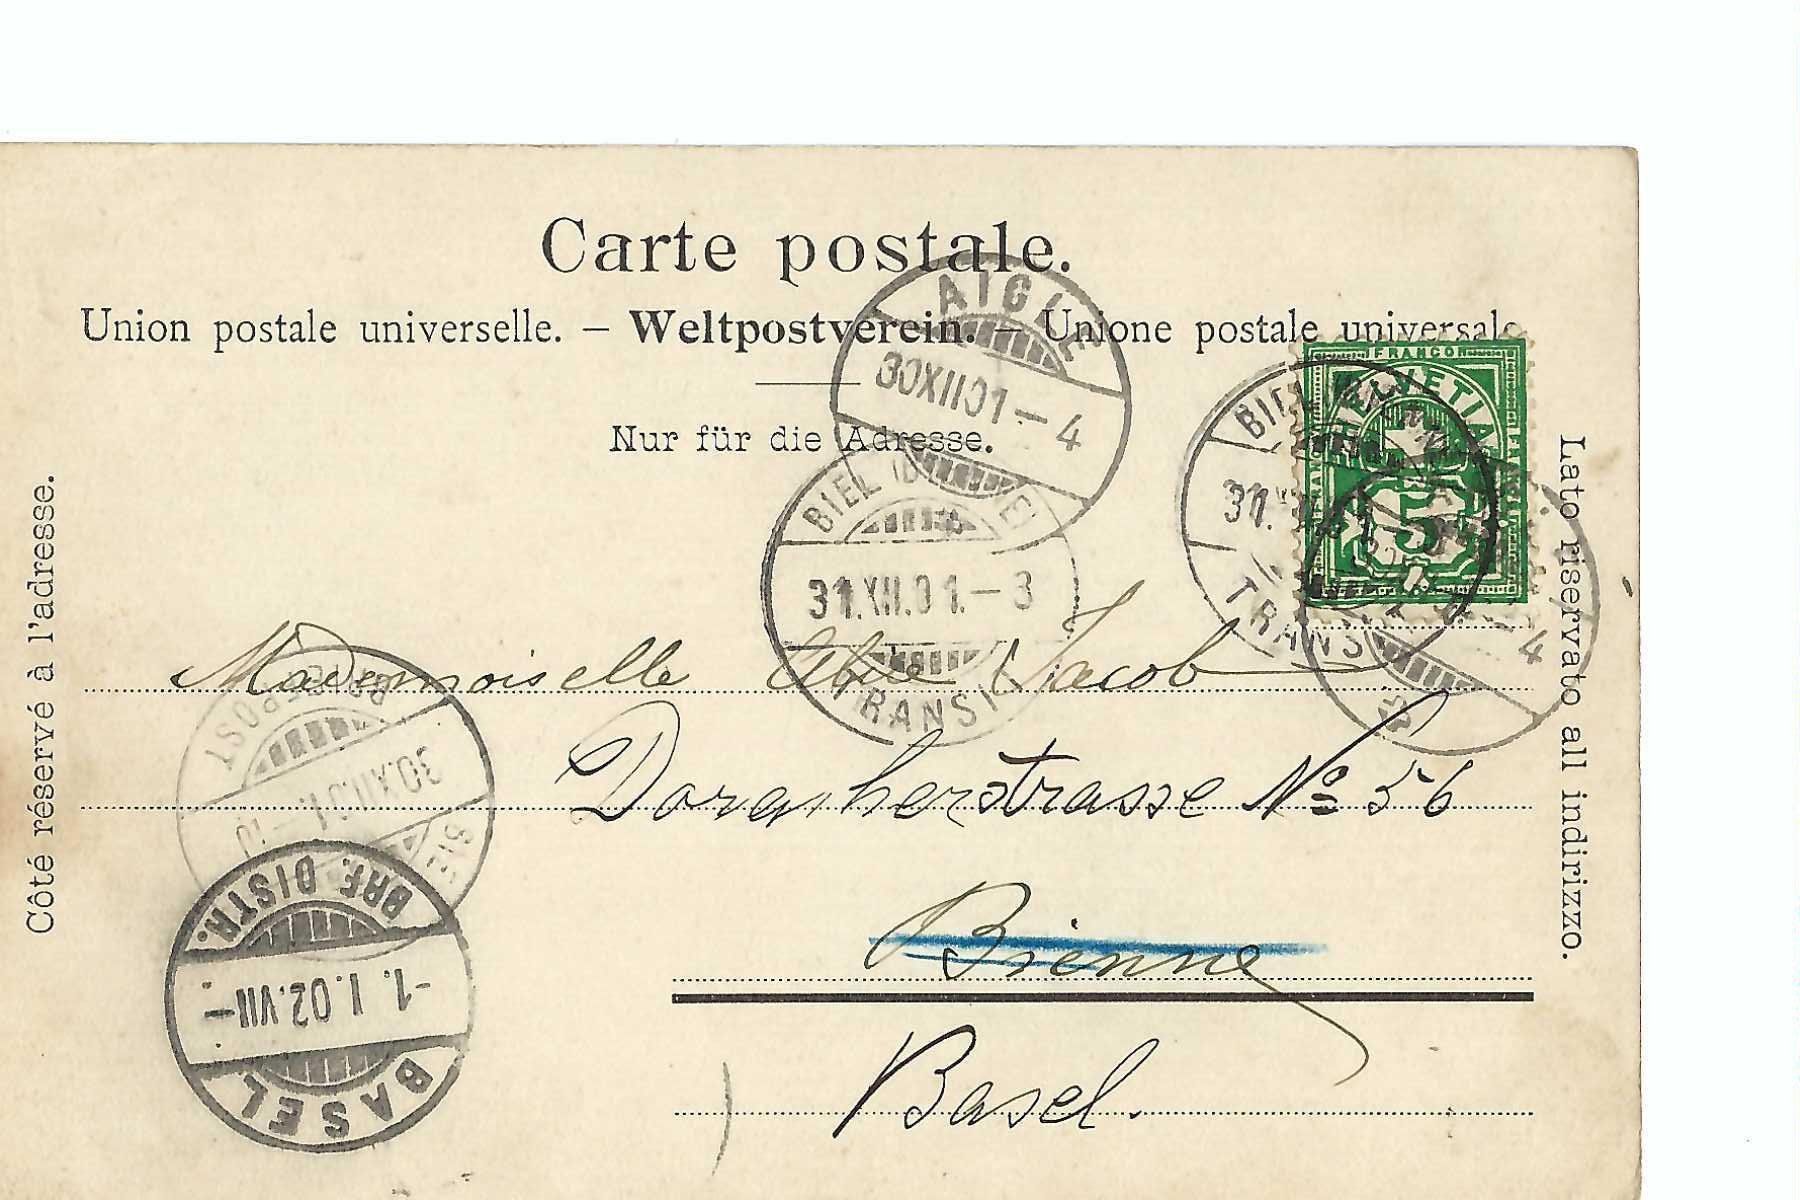 Carte postale.
Union postale universelle. – Weltpostverein. – Unione postale universale
Nur für die Adresse.
Côté réservé à l'adresse.
Lato riservato all indirizzo.
FRANCO
HELVETIA
5
AIGLE
30XII01–4
BIEL
31.XII.01.–3
TRANSIT
BIEL
31.
TRANSIT
–4
Mademoiselle Jacob
Dornacherstrasse No 56
Bienne
Basel.
BRIEFPOST
30.XII.01.–10
BRF. DISTR.
-1.I.02.VII–
BASEL